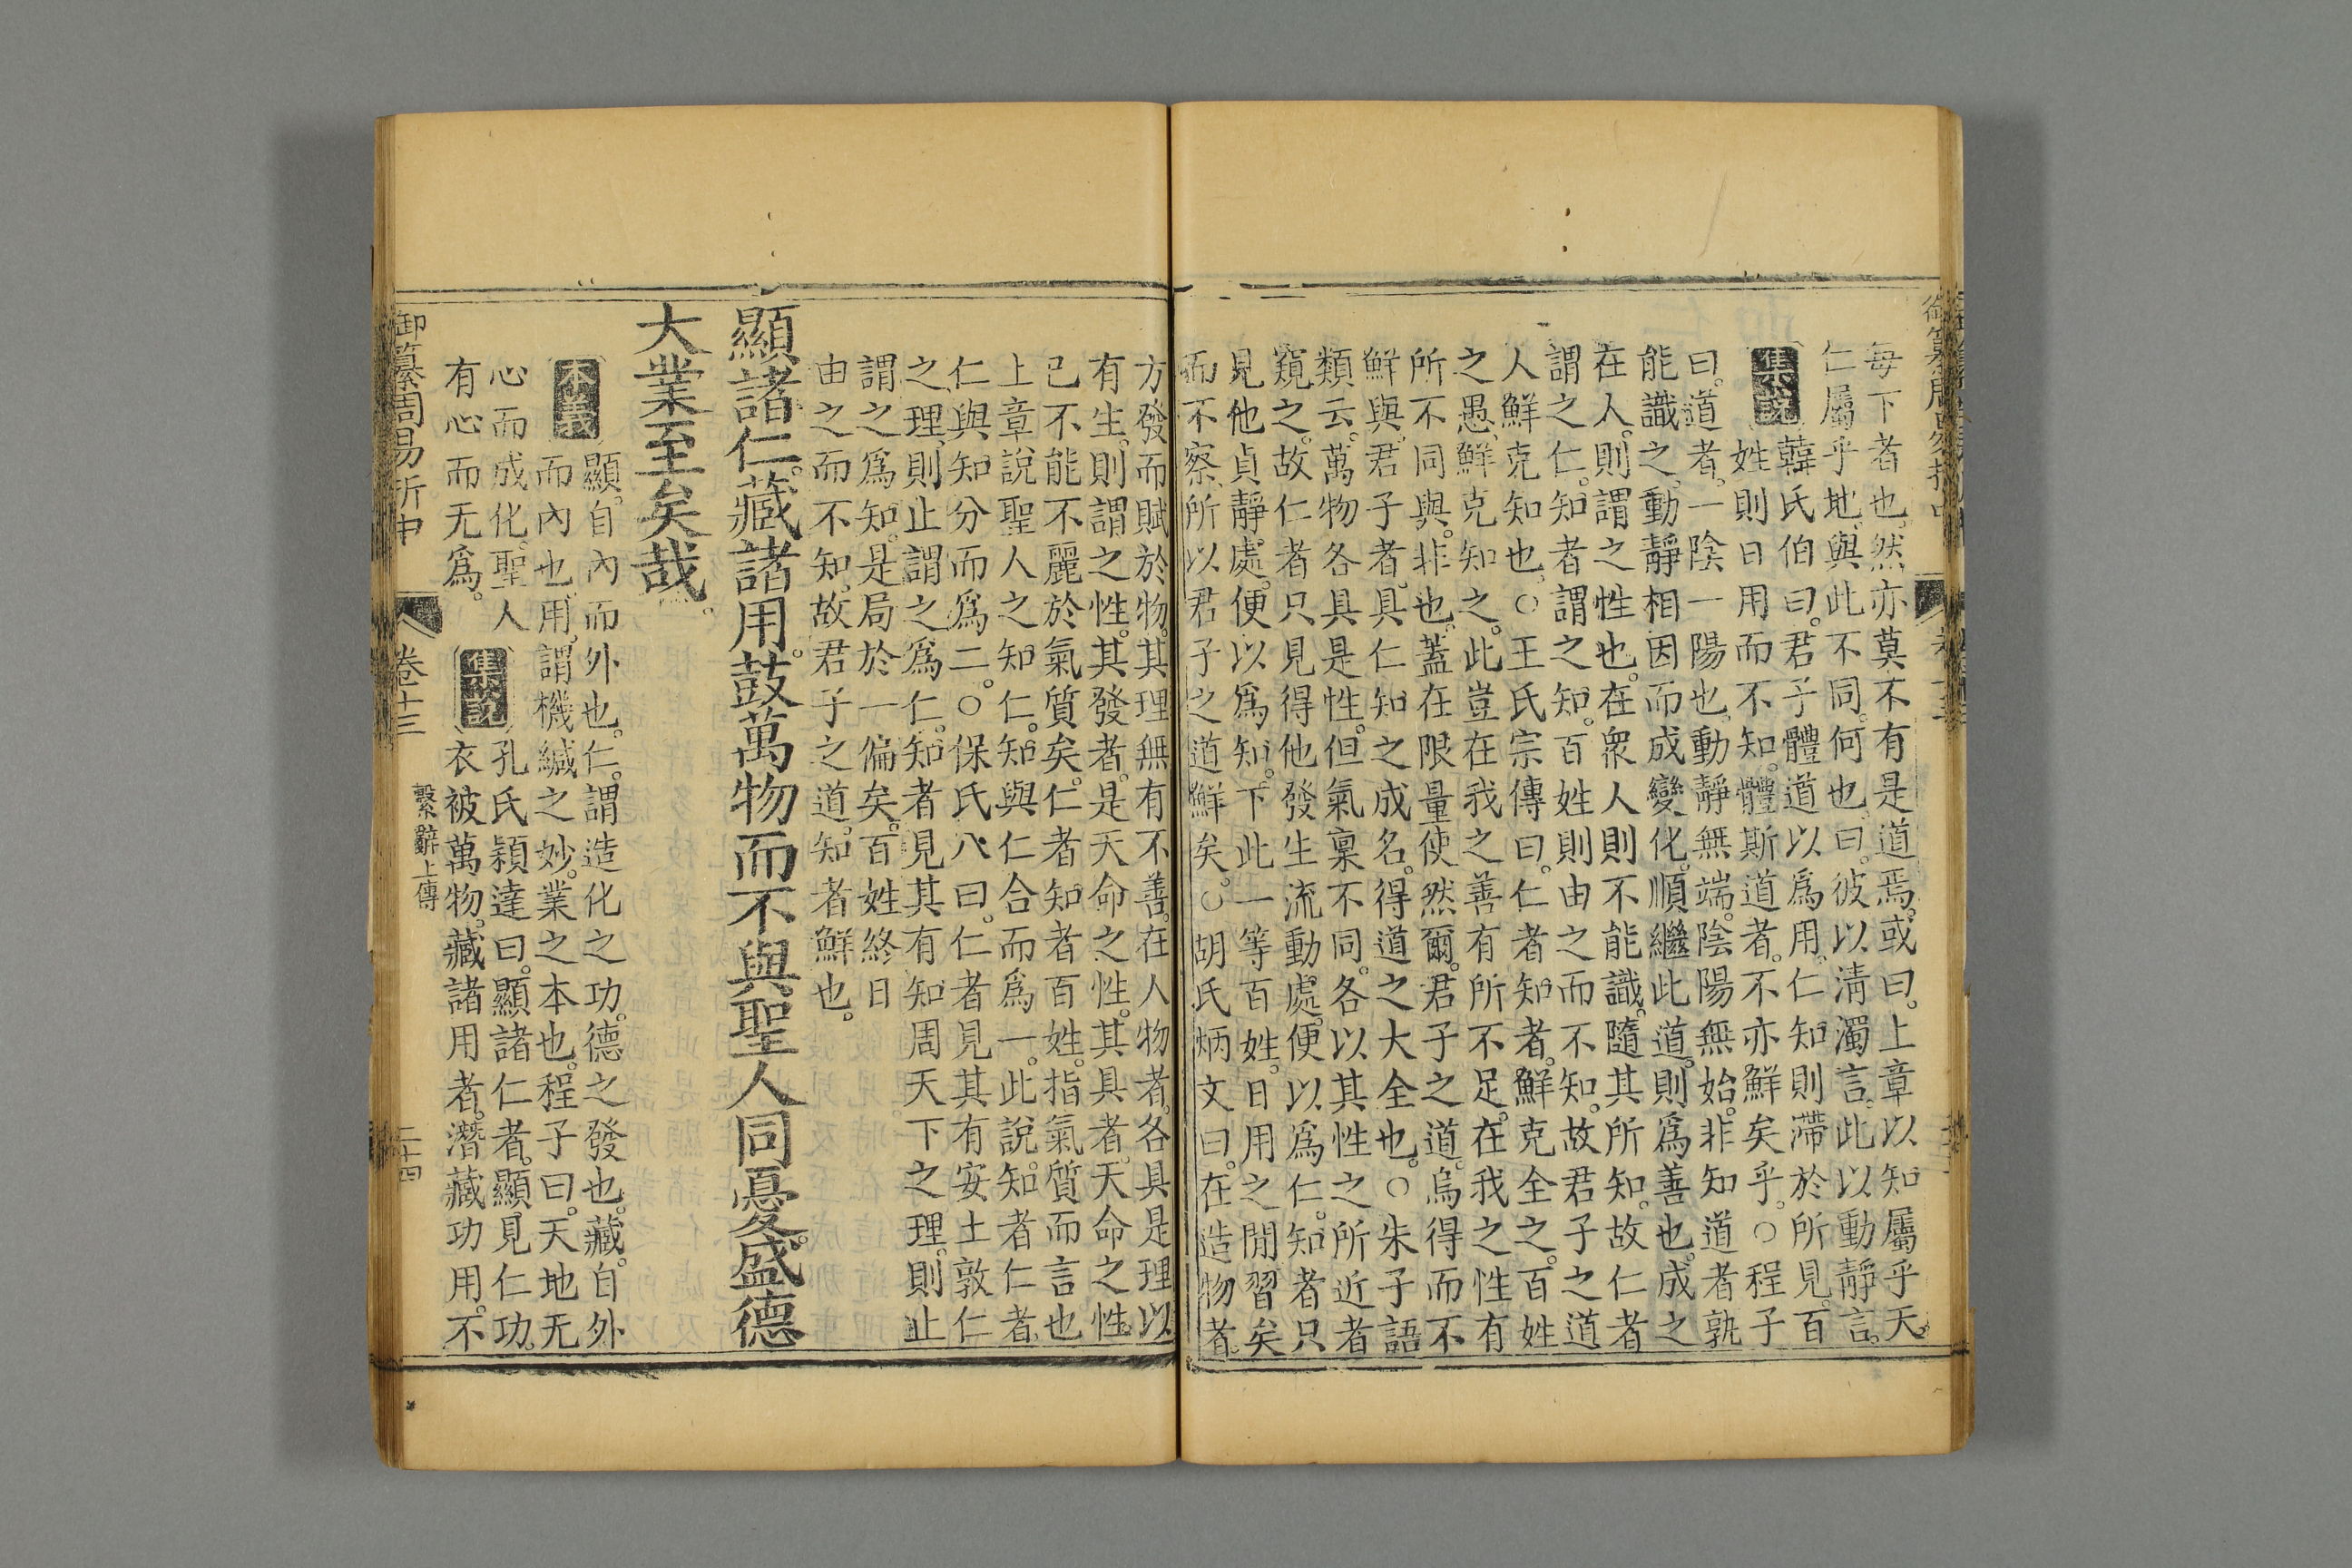 每下者也然亦莫不有是道焉或曰上章以知屬乎天
仁屬乎地與此不同何也曰彼以清濁言此以動靜言
集說 韓氏伯曰君子體道以爲用仁知則滯於所見百
姓則日用而不知體斯道者不亦鮮矣乎○程子
曰道者一陰一陽也動靜無端陰陽無始非知道者孰
能識之動靜相因而成變化順繼此道則爲善也成之
在人則謂之性也在衆人則不能識隨其所知故仁者
謂之仁知者謂之知百姓則由之而不知故君子之道
人鮮克知也○王氏宗傳曰仁者知者鮮克全之百姓
之愚鮮克知之此豈在我之善有所不足在我之性有
所不同與非也蓋在限量使然爾君子之道烏得而不
鮮與君子者具仁知之成名得道之大全也○朱子語
類云萬物各具是性但氣稟不同各以其性之所近者
窺之故仁者只見得他發生流動處便以爲仁知者只
見他貞靜處便以爲知下此一等百姓日用之閒習矣
而不察所以君子之道鮮矣○胡氏炳文曰在造物者
方發而賦於物其理無有不善在人物者各具是理以
有生則謂之性其發者是天命之性其具者天命之性
已不能不麗於氣質矣仁者知者百姓指氣質而言也
上章說聖人之知仁知與仁合而爲一此說知者仁者
仁與知分而爲二○保氏八曰仁者見其有安土敦仁
之理則止謂之爲仁知者見其有知周天下之理則止
謂之爲知是局於一偏矣百姓終日
由之而不知故君子之道知者鮮也
顯諸仁藏諸用鼓萬物而不與聖人同憂盛德
大業至矣哉
本義 顯自內而外也仁謂造化之功德之發也藏自外
而內也用謂機緘之妙業之本也程子曰天地无
心而成化聖人
有心而无爲
集說 孔氏穎達曰顯諸仁者顯見仁功
衣被萬物藏諸用者潛藏功用不
御纂周易折中
卷十三
繫辭上傳
二十四